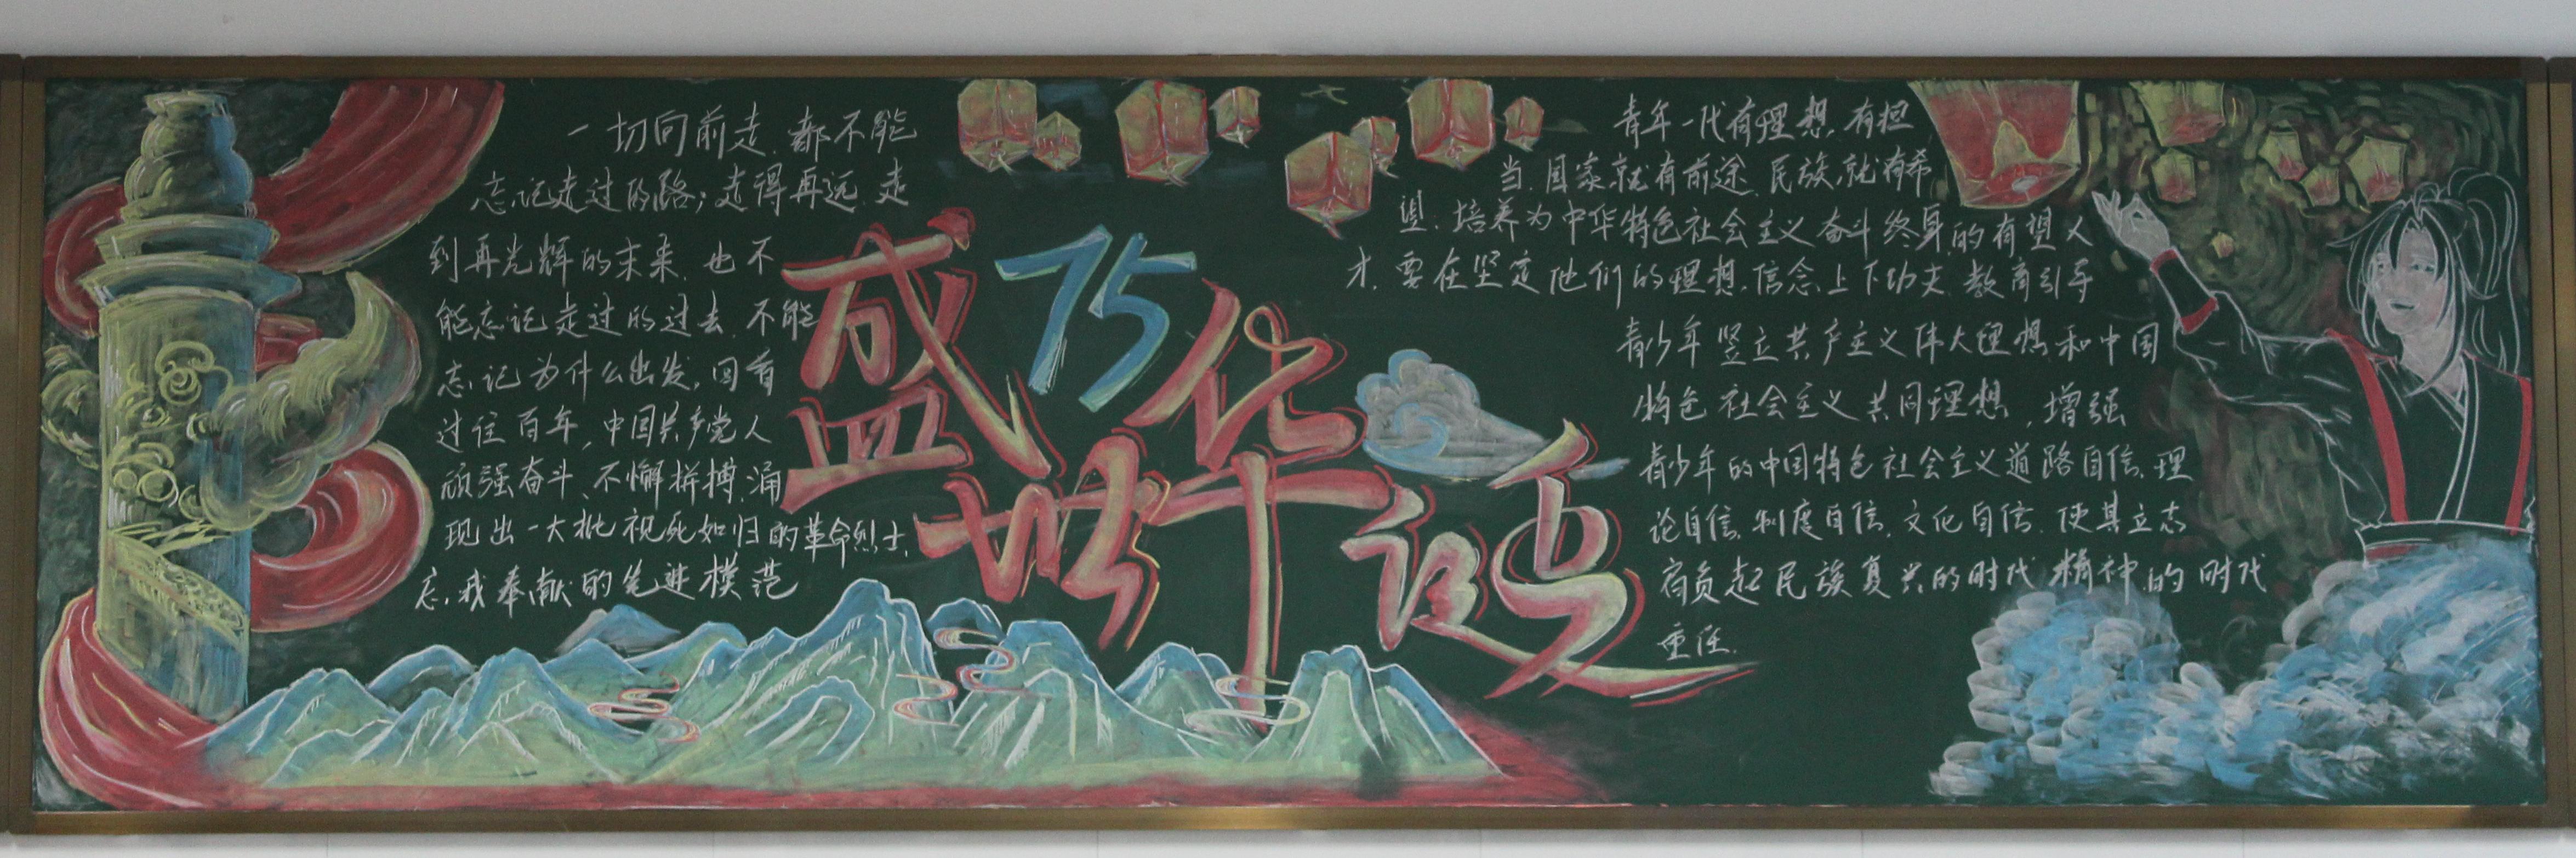 一切向前走,都不能
忘记走过的路;走得再远、走
到再光辉的未来,也不
能忘记走过的过去,不能
忘记为什么出发,回首
过往百年,中国共产党人
顽强奋斗、不懈拼搏,涌
现出一大批视死如归的革命烈士、
忘我奉献的先进模范
盛世华诞
75
青年一代有理想,有担
当,国家就有前途,民族就有希
望.培养为中华特色社会主义奋斗终身的有望人
才,要在坚定他们的理想信念上下功夫,教育引导
青少年竖立共产主义伟大理想和中国
特色社会主义共同理想,增强
青少年的中国特色社会主义道路自信、理
论自信、制度自信、文化自信,使其立志
肩负起民族复兴的时代精神的时代
重任.